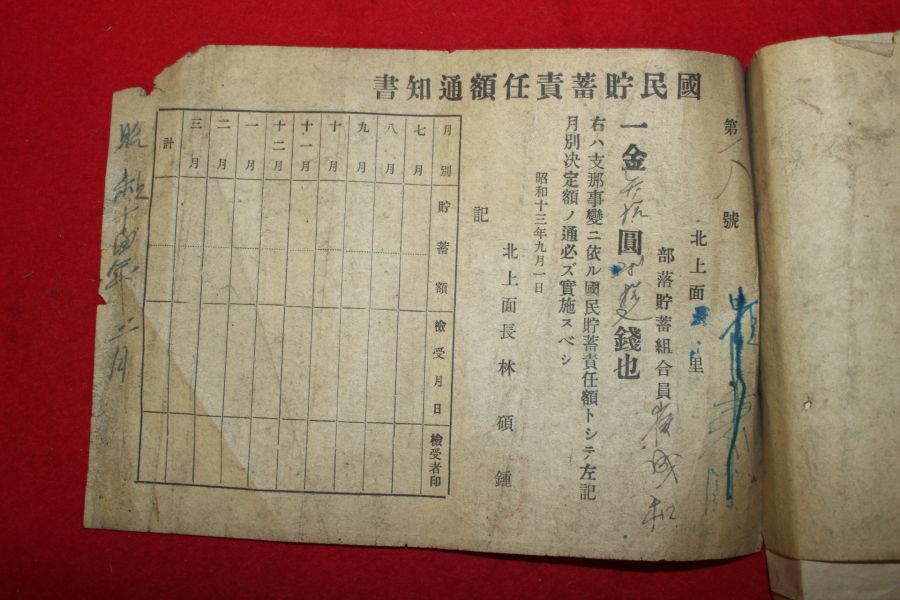 國民貯蓄責任額通知書
第 八 號
北上面 里
部落貯蓄組合員 崔成松
一金 拾 圓 錢也
右ハ支那事變ニ依ル國民貯蓄責任額トシテ左記
月別決定額ノ通必ズ實施スベシ
昭和十三年九月一日
北上面長 林碩鍾
記
月別 貯蓄額 檢受月日 檢受者印
七月
八月
九月
十月
十一月
十二月
一月
二月
三月
計
昭和十四年二月